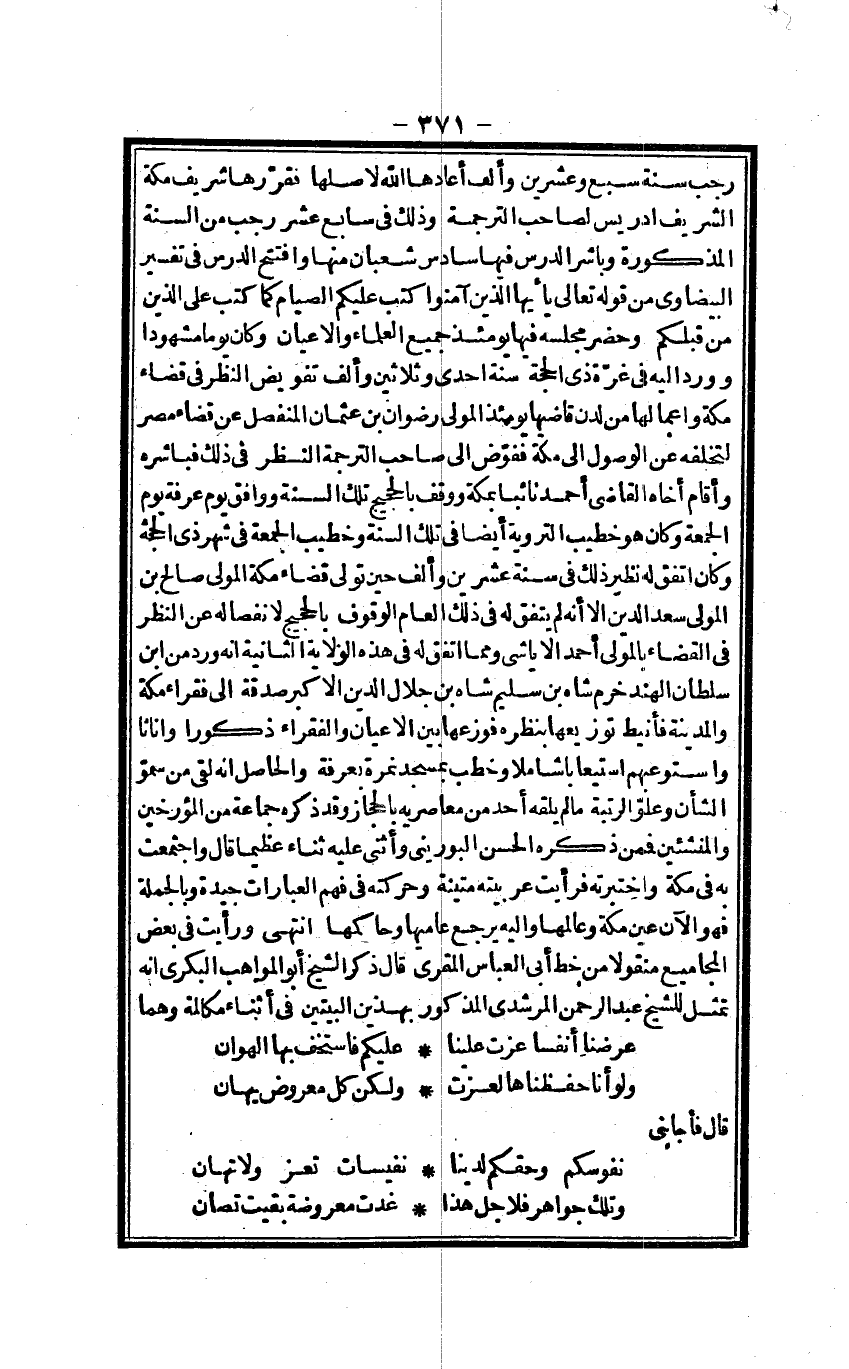 - ٣٧١ -
رجب سنة سبع وعشرين وألف أعادها الله لاصلها فقرّرها شريف مكة
الشريف ادريس لصاحب الترجمة وذلك فى سابع عشر رجب من السنة
المذكورة وباشر الدرس فيها سادس شعبان منها وافتتح الدرس فى تفسير
البيضاوى من قوله تعالى يا أيها الذين آمنوا كتب عليكم الصيام كما كتب على الذين
من قبلكم وحضر مجلسه فيها يومئذ جميع العلماء والاعيان وكان يوما مشهودا
وورد اليه فى غرّة ذى الحجة سنة احدى وثلاثين وألف تفويض النظر فى قضاء
مكة واعمالها من لدن قاضيها يومئذ المولى رضوان بن عثمان المنفصل عن قضاء مصر
لتخلفه عن الوصول الى مكة ففوّض الى صاحب الترجمة النظر فى ذلك فباشره
وأقام أخاه القاضى أحمد نائبا بمكة ووقف بالحجيج تلك السنة ووافق يوم عرفة يوم
الجمعة وكان هو خطيب التروية أيضا فى تلك السنة وخطيب الجمعة فى شهر ذى الحجة
وكان اتفق له نظير ذلك فى سنة عشرين وألف حين تولى قضاء مكة المولى صالح بن
المولى سعد الدين الا أنه لم يتفق له فى ذلك العام الوقوف بالحجيج لانفصاله عن النظر
فى القضاء بالمولى أحمد الاياشى ومما اتفق له فى هذه الولاية الثانية انه ورد من ابن
سلطان الهند خرم شاه بن سليم شاه بن جلال الدين الاكبر صدقة الى فقراء مكة
والمدينة فأنيط توزيعها بنظره فوزعها بين الاعيان والفقراء ذكورا واناثا
واستوعبهم استيعابا شاملا وخطب بمسجد نمرة بعرفة والحاصل انه لقى من سموّ
الشأن وعلوّ الرتبة مالم يلقه أحد من معاصريه بالحجاز وقد ذكره جماعة من المؤرخين
والمنشئين فمن ذكره الحسن البورينى وأثنى عليه ثناء عظيما قال واجتمعت
به فى مكة واختبرته فرأيت عربيته متينة وحركته فى فهم العبارات جيدة وبالجملة
فهو الآن عين مكة وعالمها واليه يرجع عاميها وحاكمها انتهى ورأيت فى بعض
المجاميع منقولا من خط أبى العباس المقرى قال ذكر الشيخ أبو المواهب البكرى انه
تمثل للشيخ عبد الرحمن المرشدى المذكور بهذين البيتين فى أثناء مكالمة وهما
عرضنا أنفسا عزت علينا * عليكم فاستخف بها الهوان
ولو أنا حفظناها لعزت * ولكن كل معروض يهان
قال فأجابنى
نفوسكم وحقكم لدينا * نفيسات تعز ولاتهان
وتلك جواهر فلاجل هذا * غدت معروضة بقيت تصان